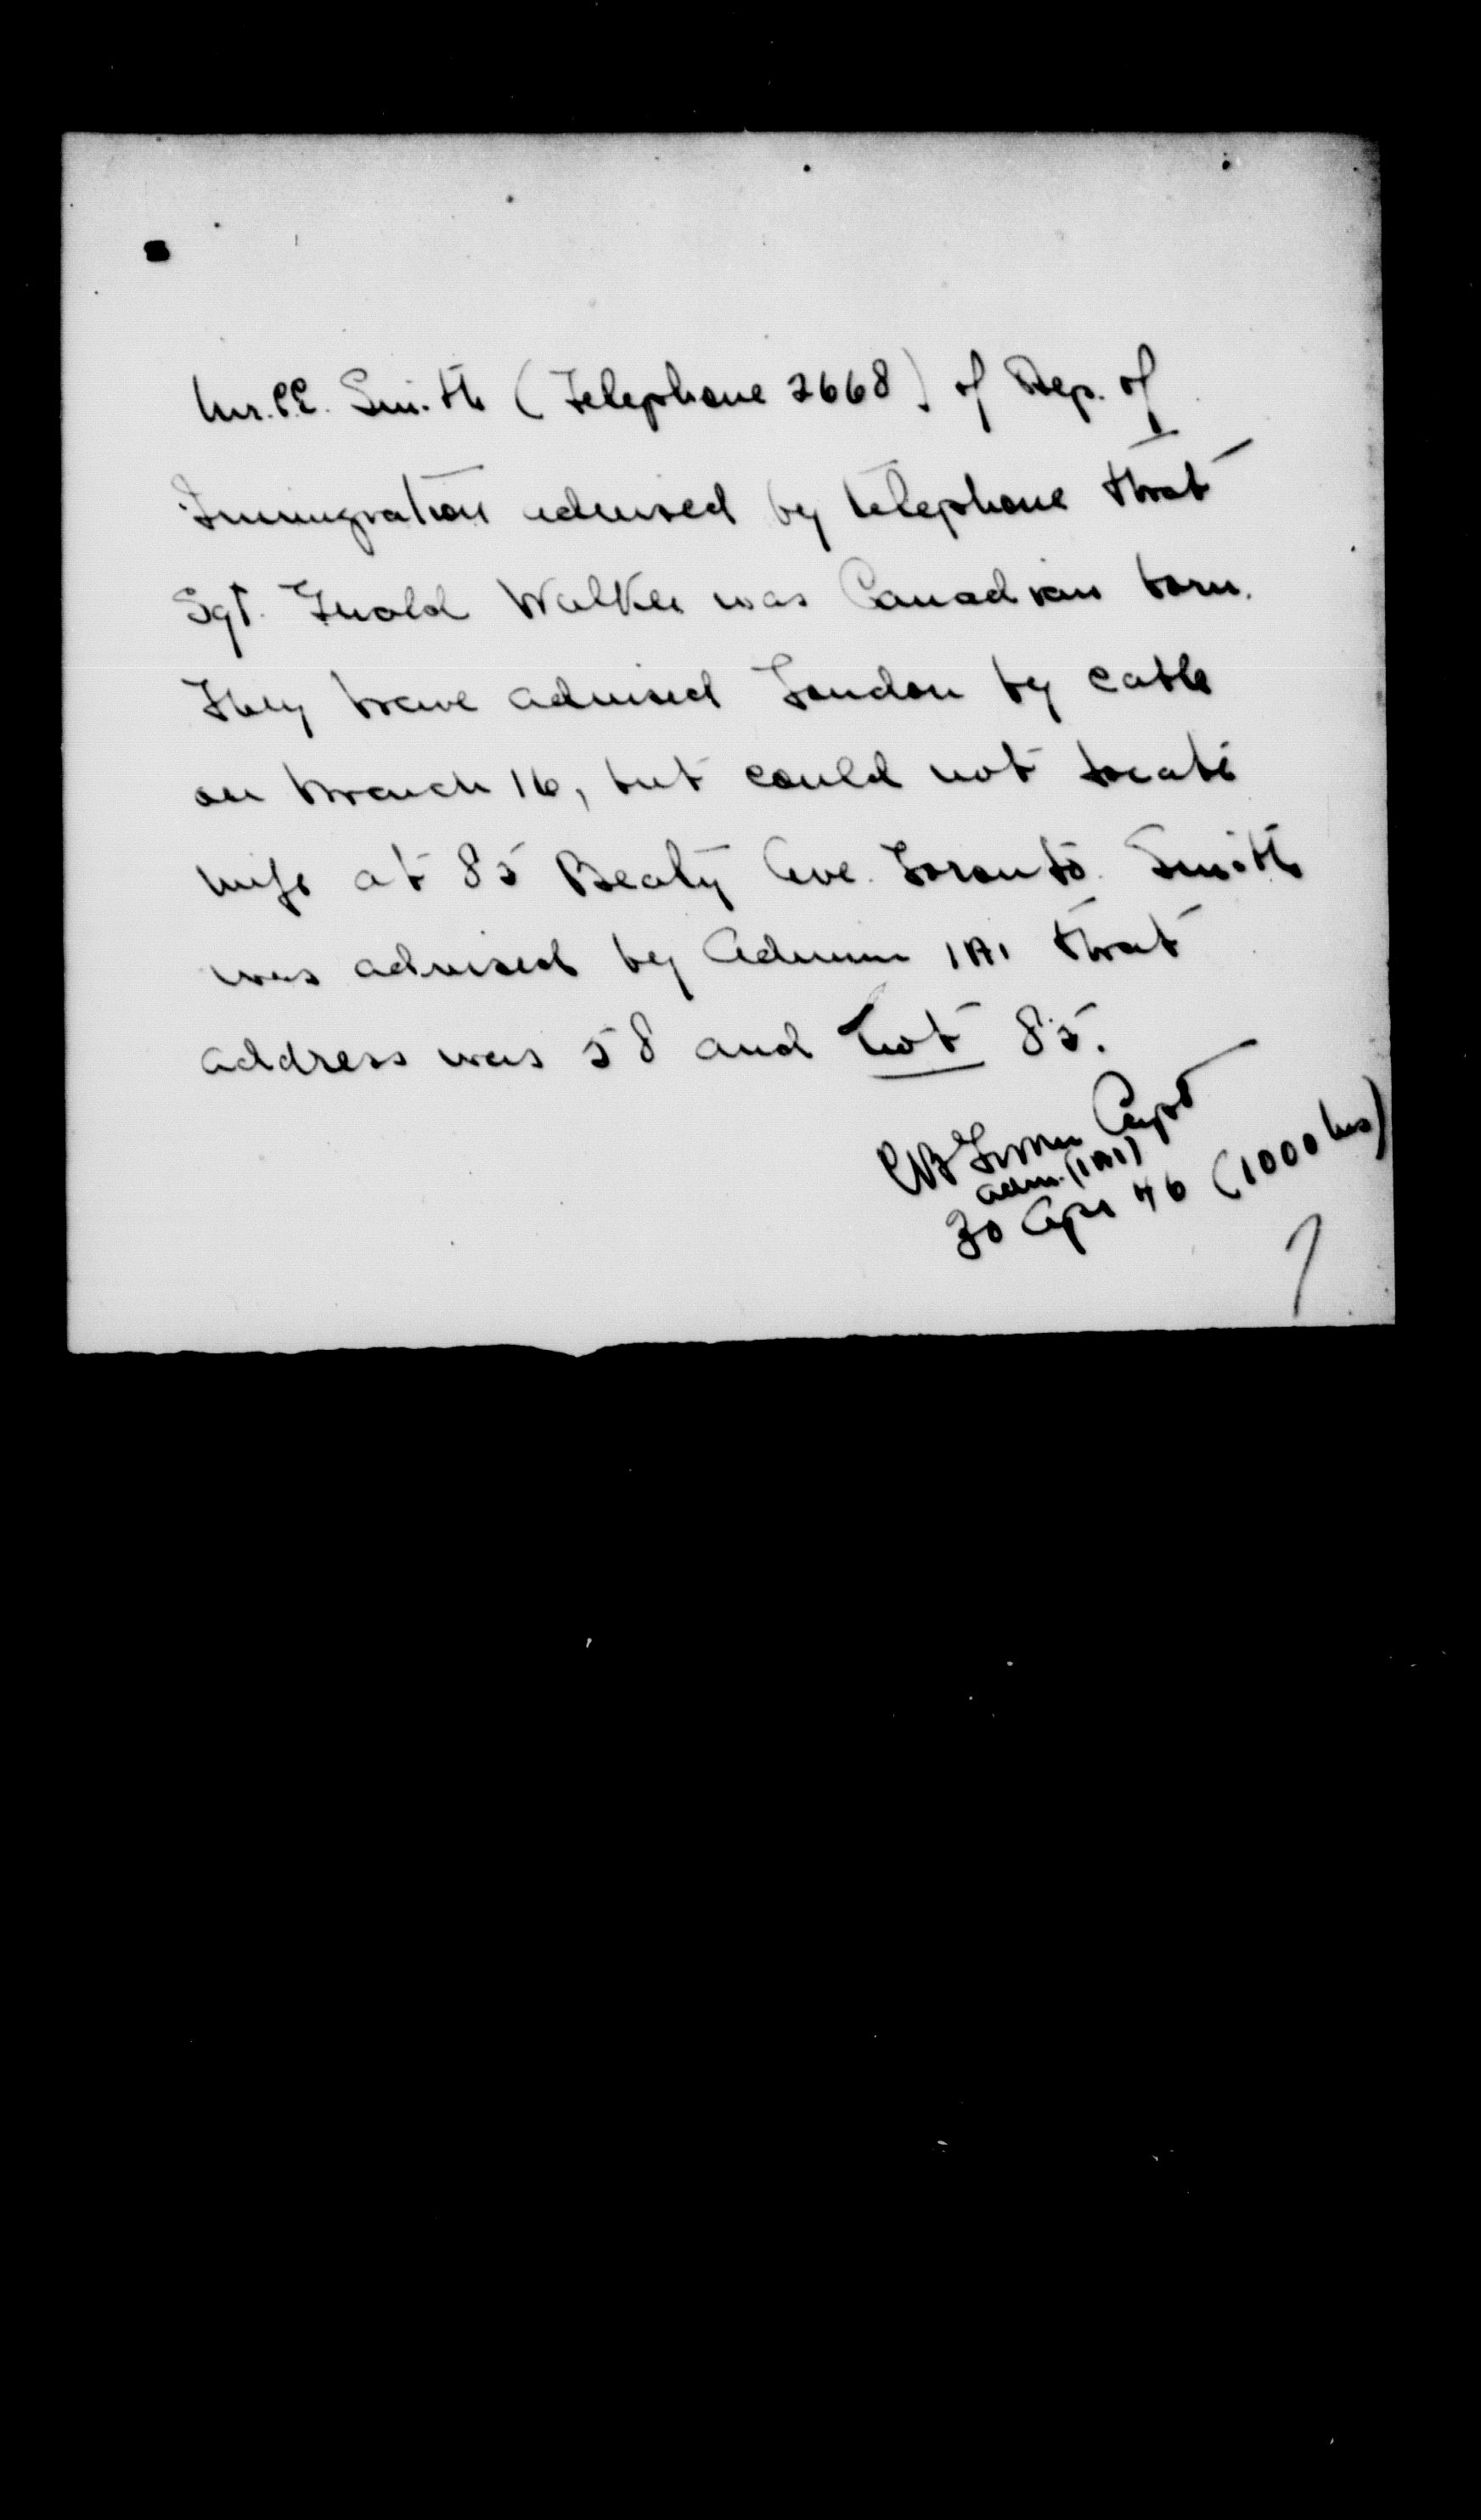 Mr. C.E. Smith (Telephone 2668) of Dep. of
Immigration advised by telephone that
Sgt. Walker was Canadian born.
They have advised London by cable
on March 16, but could not locate
wife at 85 Beaty Ave. Toronto. Smith
was advised by Admin 1A1 that
address was 58 and not 85.
Capt
adm. (1A1)
30 Apr 46 (1000 hrs)